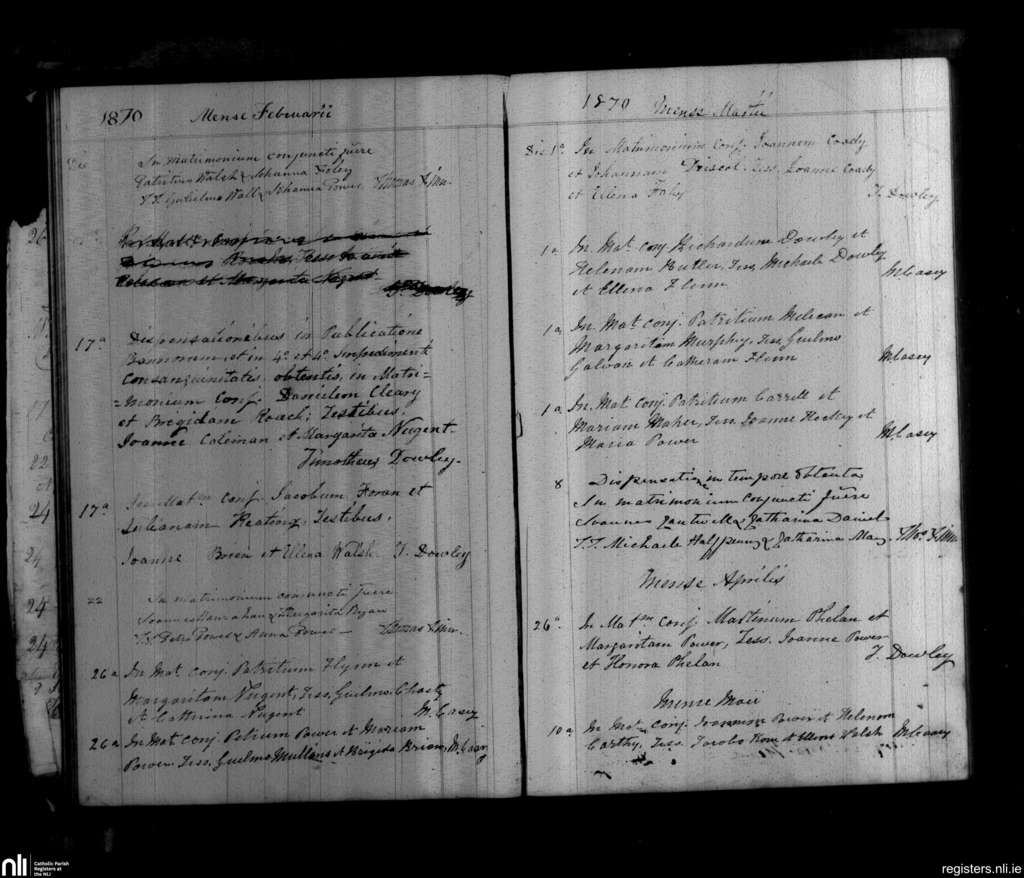 1870 Mense Februarii
In matrimonium conjuncti fuêre
Patritius Walsh & Johanna Foley
T.T. Gulielmo Wall & Johanna Power Thomas
T. Dowley
17a Dispensationibus in Publicatione
Bannorum, et in 4o et 4o Impediment
Consanguinitatis, obtentis, in Matri=
=monium Conj. Danielem Cleary
et Brigidam Roach; Testibus,
Joanne Coleman et Margarita Nugent.
Timotheus Dowley.
17a In Matm Conj. Jacobum Foran et
Julianam Keating, Testibus,
Joanne et Ellena Walsh. T. Dowley
22 In matrimonium conjuncti fuêre
Joannes Hanrahan & Margarita Ryan
T.T. Petro Power & Anna Power — Thomas
26a In Mat. conj. Patritium Flynn et
Margaritam Nugent, Tess. Guelmo
et Catherina Nugent M. Casey
26a In Mat conj. Power et Mariam
Power. Tess. Guelmo Mullins et Brigida Brien. M. Casey
1870 Mense Martii
Die 1a In Matrimonium Conj. Joannem Coady
et Johannam Driscol. Tess. Joanne Coady
et Ellena T. Dowley
1a In Mat. conj. Richardum Dowley et
Helenam Butler, Tess. Michaele Dowley
et Ellena Flinn M Casey
1a In Mat conj. Patritium et
Margaritam Murphy, Tess. Guelmo
Galvan et Flinn M Casey
1a In Mat conj. Patritium et
Mariam Maher, Tess. Joanne et
Maria Power M Casey
8 Dispensatione in tempore obtenta
In matrimonium conjuncti fuêre
Joannes Cantwell & Catharina Daniel
T.T. Michaele Halfpenny & Catharina Thos
Mense Aprilis
26a In Matm Conj. Martinum Phelan et
Margaritam Power, Tess. Joanne Power
et Honora Phelan T. Dowley
Mense Maii
10a In Mat. conj. Power et Helenam
Carthy, Tess. Jacobo et Ellena Walsh M Casey
24
24
24
24
nli Catholic Parish
Registers at
the NLI
registers.nli.ie